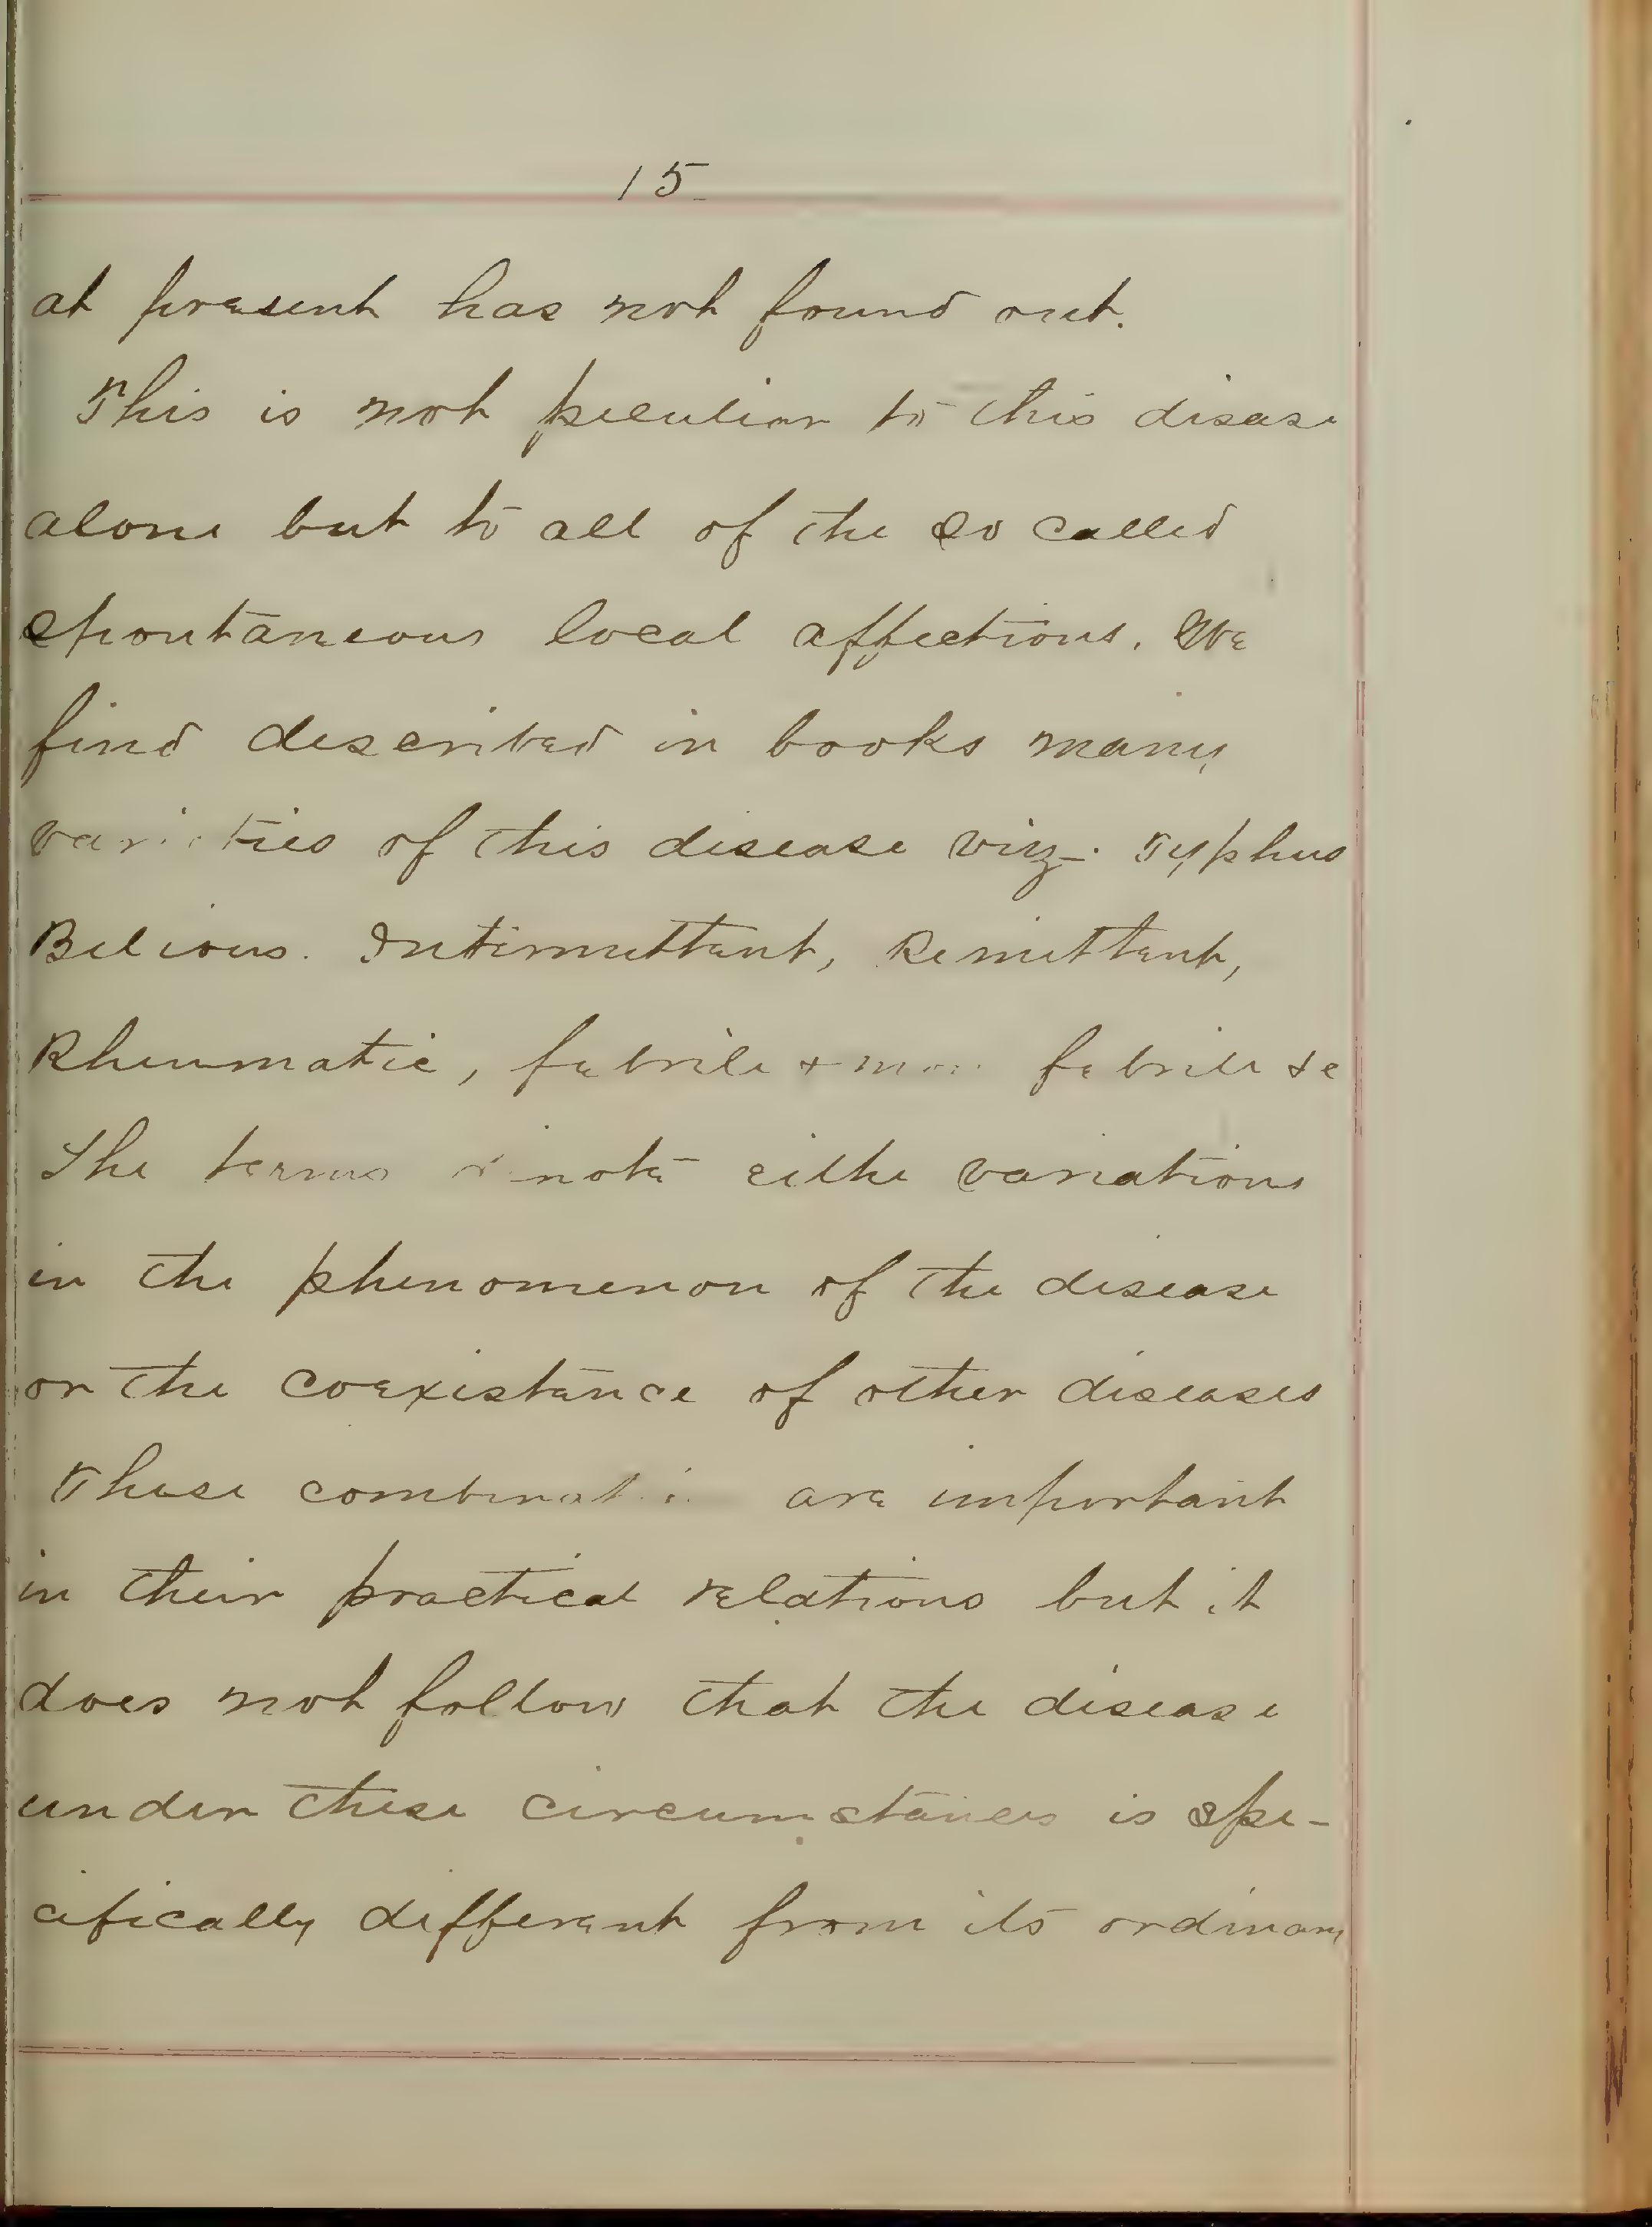 15
at present has not found out.
This is not peculiar to this disease
alone but to all of the so called
spontaneous local affections. We
find described in books many
varieties of this disease viz-. Typhus
Belious. Intermittant, Remittant,
Rheumatic, febrile & non febrile &c
The terms denote eithe variations
in the phenomenon of the disease
or the coexistance of other diseases
These are important
in their practical relations but it
does not follow that the disease
under these circumstances is spe-
cifically different from its ordinary